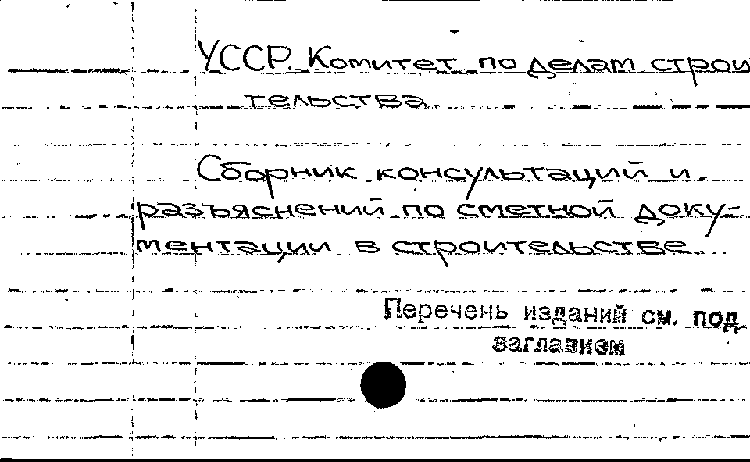 УССР. Комитет по делам строи
тельства
Сборник консультаций и
разъяснений по сметной доку-
ментации в строительстве
Перечень изданий см. под
заглавием